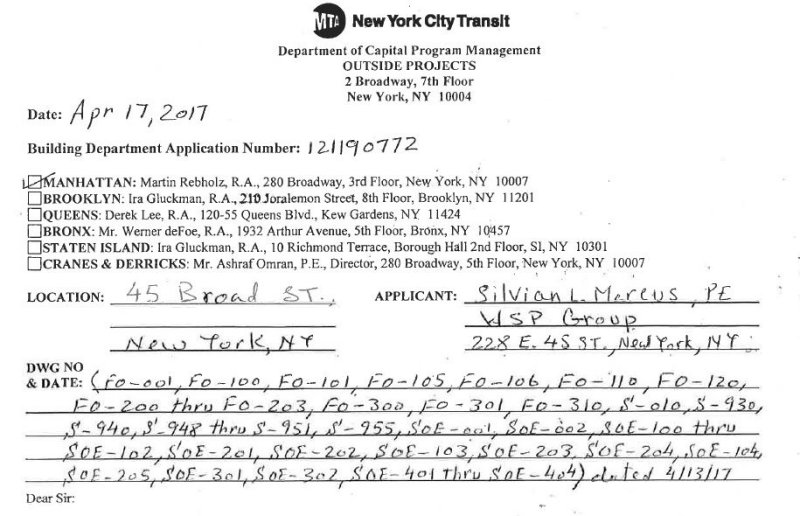 MTA New York City Transit
Department of Capital Program Management
OUTSIDE PROJECTS
2 Broadway, 7th Floor
New York, NY 10004
Date: Apr 17, 2017
Building Department Application Number: 121190772
MANHATTAN: Martin Rebholz, R.A., 280 Broadway, 3rd Floor, New York, NY 10007
BROOKLYN: Ira Gluckman, R.A., 210 Joralemon Street, 8th Floor, Brooklyn, NY 11201
QUEENS: Derek Lee, R.A., 120-55 Queens Blvd., Kew Gardens, NY 11424
BRONX: Mr. Werner deFoe, R.A., 1932 Arthur Avenue, 5th Floor, Bronx, NY 10457
STATEN ISLAND: Ira Gluckman, R.A., 10 Richmond Terrace, Borough Hall 2nd Floor, SI, NY 10301
CRANES & DERRICKS: Mr. Ashraf Omran, P.E., Director, 280 Broadway, 5th Floor, New York, NY 10007
LOCATION: 45 Broad ST., APPLICANT: Silvian L. Marcus, PE
WSP Group
New York, NY 228 E. 45 ST., New York, NY.
DWG NO
& DATE: (FO-001, FO-100, FO-101, FO-105, FO-106, FO-110, FO-120,
FO-200 thru FO-203, FO-300, FO-301, FO-310, S-010, S-930,
S-940, S-948 thru S-951, S-955, SOE-001, SOE-002, SOE-100 thru
SOE-102, SOE-201, SOE-202, SOE-103, SOE-203, SOE-204, SOE-104,
SOE-205, SOE-301, SOE-302, SOE-401 thru SOE-404) dated 4/13/17
Dear Sir: